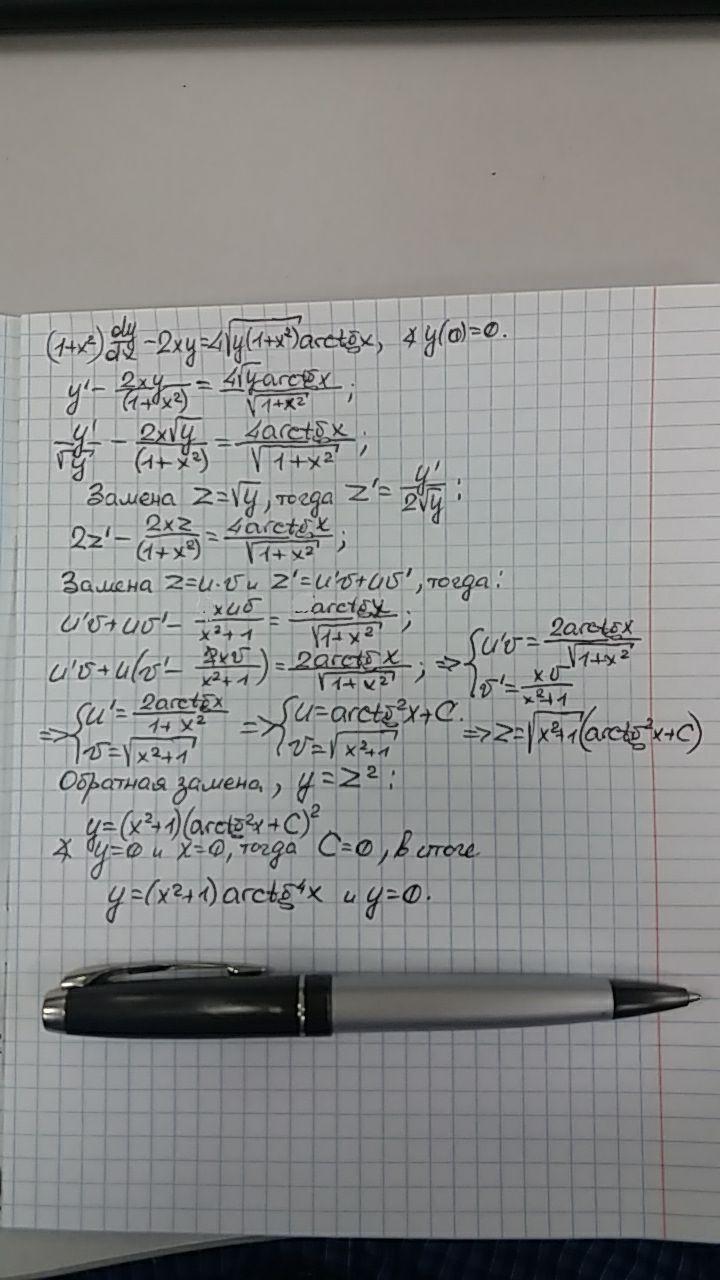 (1+x²) dy/dx − 2xy = 4√(y(1+x²)) arctg x, ∢ y(0)=0.
y' − 2xy/(1+x²) = 4√y arctg x/√(1+x²);
y'/√y − 2x√y/(1+x²) = 4arctg x/√(1+x²);
Замена z=√y, тогда z' = y'/(2√y):
2z' − 2xz/(1+x²) = 4arctg x/√(1+x²);
Замена z=u·v и z'=u'v+uv', тогда:
u'v+uv' − xuv/(x²+1) = arctg x/√(1+x²);
u'v+u(v' − xv/(x²+1)) = 2arctg x/√(1+x²); ⇒ {u'v = 2arctg x/√(1+x²) {v' = xv/(x²+1)
⇒ {u' = 2arctg x/(1+x²) {v=√(x²+1) ⇒ {u=arctg²x+C. {v=√(x²+1) ⇒ z=√(x²+1)(arctg²x+C)
Обратная замена, y=z²:
y=(x²+1)(arctg²x+C)²
∢ y=0 и x=0, тогда C=0, в итоге
y=(x²+1)arctg⁴x и y=0.